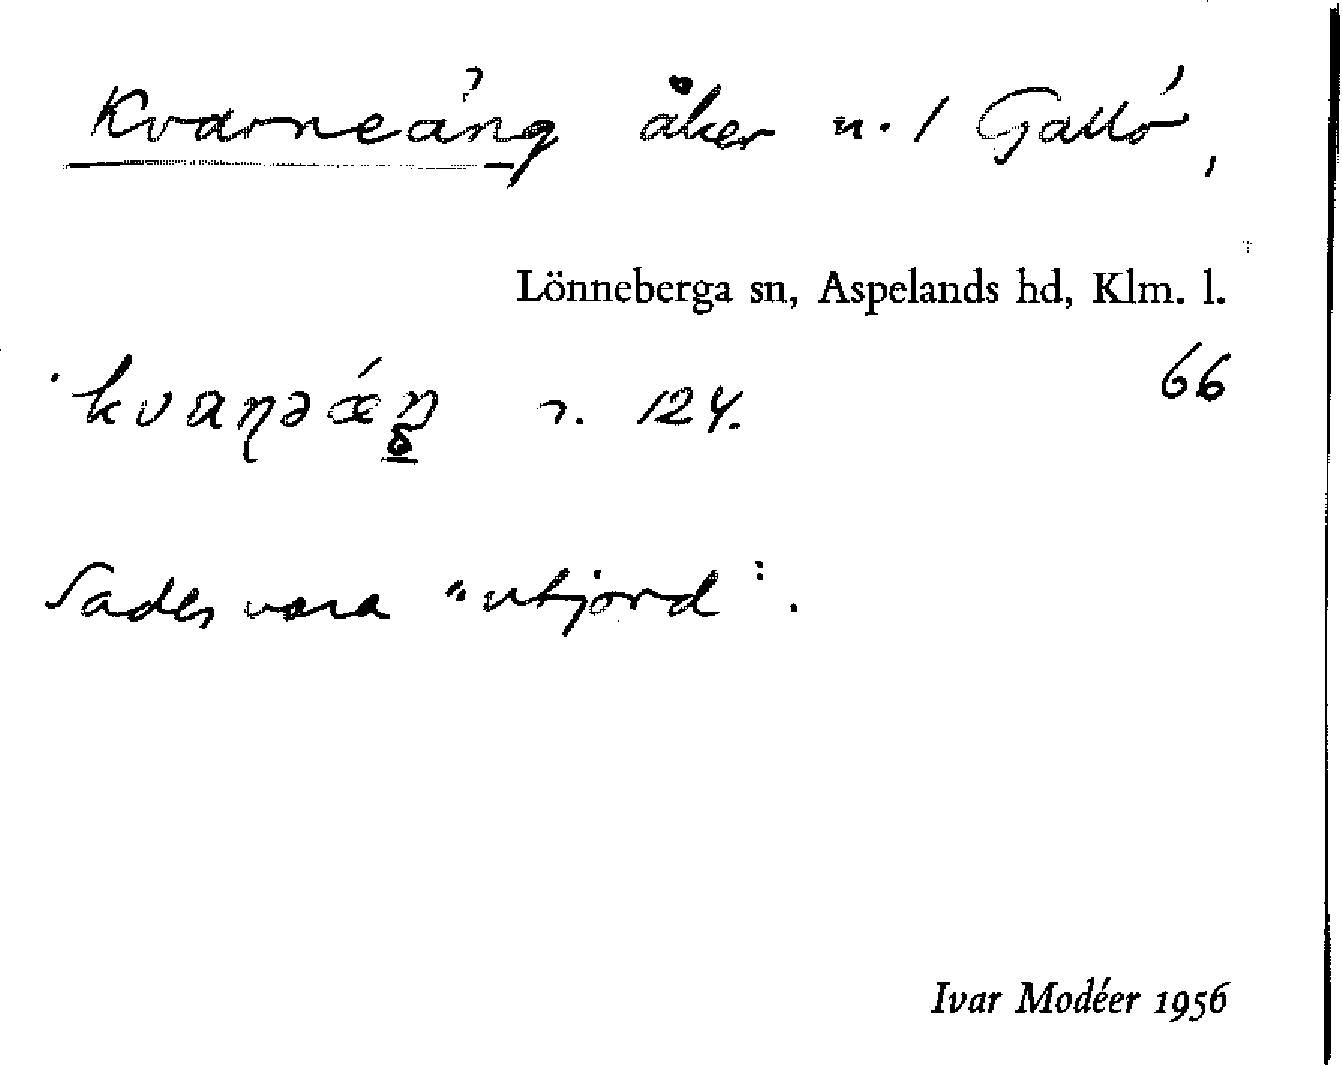 Kvarneäng åker n. 1 Gallö,
Lönneberga sn, Aspelands hd, Klm. l.
66
r. 124.
Sades vara "utjord".
Ivar Modéer 1956